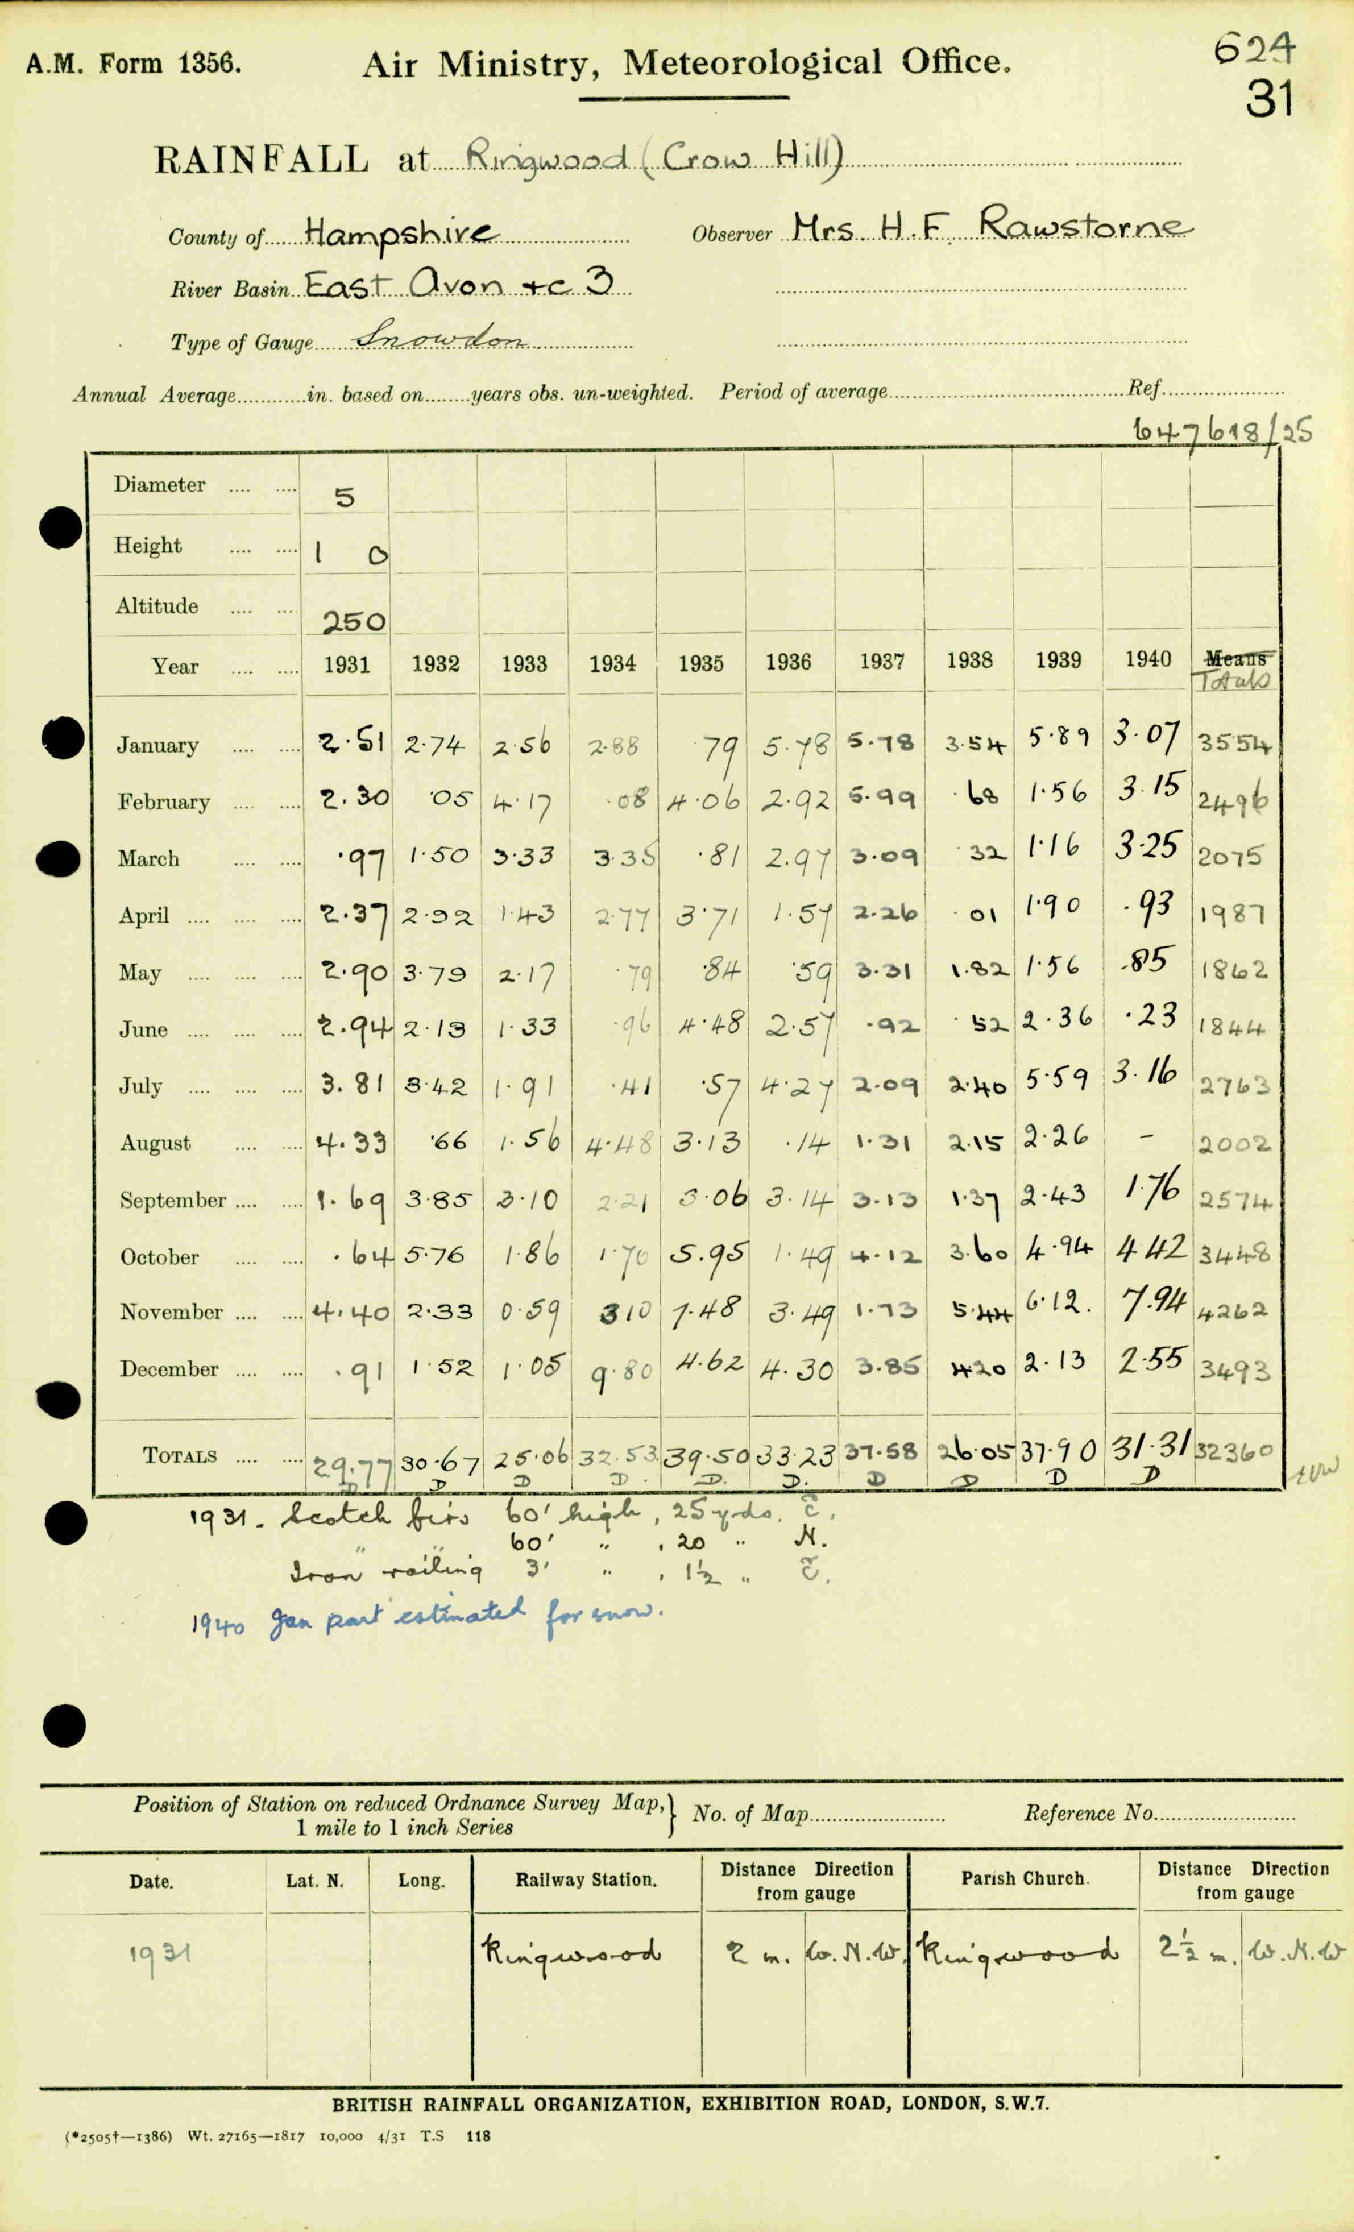 A.M. Form 1356. Air Ministry, Meteorological Office. 624
31
RAINFALL at Ringwood (Crow Hill)
County of Hampshire Observer Mrs. H.F. Rawstorne
River Basin East Avon +c 3
Type of Gauge Snowdon
Annual Average in. based on years obs. un-weighted. Period of average Ref.
647618/25
Diameter 5
Height 1 0
Altitude 250
Year 1931 1932 1933 1934 1935 1936 1937 1938 1939 1940 Means
Totals
January 2.51 2.74 2.56 2.88 .79 5.78 5.78 3.54 5.89 3.07 3554
February 2.30 .05 4.17 .08 4.06 2.92 5.99 .68 1.56 3.15 2496
March .97 1.50 3.33 3.35 .81 2.97 3.09 .32 1.16 3.25 2075
April 2.37 2.92 1.43 2.77 3.71 1.57 2.26 .01 1.90 .93 1987
May 2.90 3.79 2.17 .79 .84 .59 3.31 1.82 1.56 .85 1862
June 2.94 2.13 1.33 .96 4.48 2.57 .92 .52 2.36 .23 1844
July 3.81 3.42 1.91 .41 .57 4.27 2.09 2.40 5.59 3.16 2763
August 4.33 .66 1.56 4.48 3.13 .14 1.31 2.15 2.26 - 2002
September 1.69 3.85 3.10 2.21 3.06 3.14 3.13 1.37 2.43 1.76 2574
October .64 5.76 1.86 1.70 5.95 1.49 4.12 3.60 4.94 4.42 3448
November 4.40 2.33 0.59 3.10 7.48 3.49 1.73 5.44 6.12. 7.94 4262
December .91 1.52 1.05 9.80 4.62 4.30 3.85 4.20 2.13 2.55 3493
TOTALS 29.77 30.67 25.06 32.53 39.50 33.23 37.58 26.05 37.90 31.31 32360
D D D D D D D D D D
1931. Scotch firs 60' high, 25 yds. E.
" " 60' " , 20 " N.
Iron railing 3' " , 1½ " E.
1940 Jan part estimated for snow.
Position of Station on reduced Ordnance Survey Map, No. of Map Reference No.
1 mile to 1 inch Series
Date. Lat. N. Long. Railway Station. Distance Direction from gauge Parish Church. Distance Direction from gauge
1931 Ringwood 2 m. W.N.W. Ringwood 2½ m. W.N.W
BRITISH RAINFALL ORGANIZATION, EXHIBITION ROAD, LONDON, S.W.7.
(*2505†—1386) Wt. 27165—1817 10,000 4/31 T.S 118